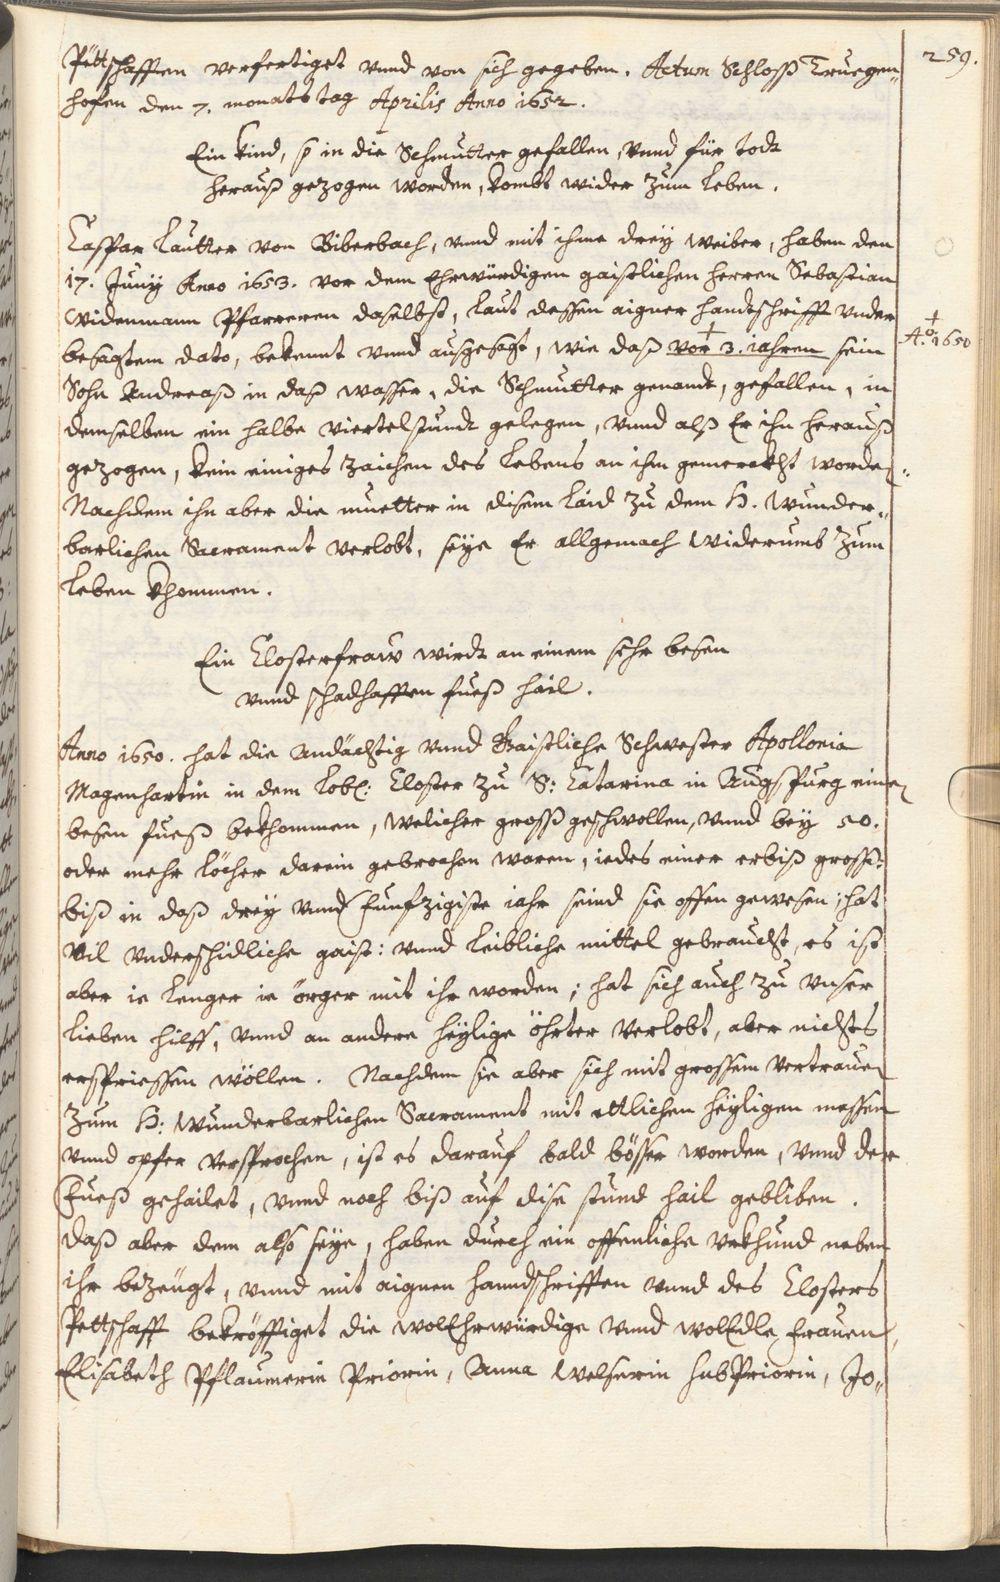 259.
Pettschafften verfertiget vnnd von sich gegeben. Actum Schloß Truegen„
hofen den 7. monats tag Aprilis Anno 1652.
Ein kind, so in die Schmutter gefallen, vnnd für todt
herauß gezogen worden, kombt wider zum leben.
Caspar Lautter von Biberbach, vnnd mit ihme drey weiber, haben den
17. Junij Anno 1653. vor dem Ehrwürdigen gaistlichen herren Sebastian
Widenmann Pfarreren daselbst, laut dessen aigner handtschrifft vnder
besagtem dato, bekennt vnnd ausgesagt, wie daß vor 3. iahren sein
+ A.o 1650
Sohn Andreaß in daß wasser, die Schmutter genandt, gefallen, in
demselben ein halbe viertelstundt gelegen, vnnd alß Er ihn herauß
gezogen, kein einiges zaichen des lebens an ihm gemerckht worden.
Nachdem ihn aber die muetter in disem laid zu dem H. Wunder„
barlichen Sacrament verlobt, seye Er allgemach widerumb zum
leben khommen.
Ein Closterfraw wirdt an einem sehr besen
vnnd schadhafften fueß hail.
Anno 1650. hat die Andächtig vnnd Gaistliche Schwester Apollonia
Magenhartin in dem Lobl: Closter zu S: Catarina in Augspurg einen
besen fueß bekhommen, welicher groß geschwollen, vnnd bey 50.
oder mehr löcher darein gebrochen waren, iedes einer erbiß gross:
biß in daß drey vnnd Funfzigiste iahr seind sie offen gewesen; hat
vil vnderschidliche gaist: vnnd leibliche mittel gebraucht, es ist
aber ie lenger ie örger mit ihr worden; hat sich auch zu vnser
lieben hilff, vnnd an andere heylige öhrter verlobt, aber nichts
erspriessen wöllen. Nachdem sie aber sich mit grossem vertrauen
zum H: Wunderbarlichen Sacrament mit ettlichen heyligen messen
vnnd opfer versprochen, ist es darauf bald bösser worden, vnnd der
Fueß gehailet, vnnd noch biß auf dise stund hail gebliben.
Daß aber dem also seye, haben durch ein offenliche vrkhund neben
ihr bezeugt, vnnd mit aignen handschrifften vnnd des Closters
Pettschafft bekröfftiget die WolEhrwürdige vnnd WolEdle Frauen,
Elisabeth Pflaumerin Priorin, Anna Welserin SubPriorin, Jo„